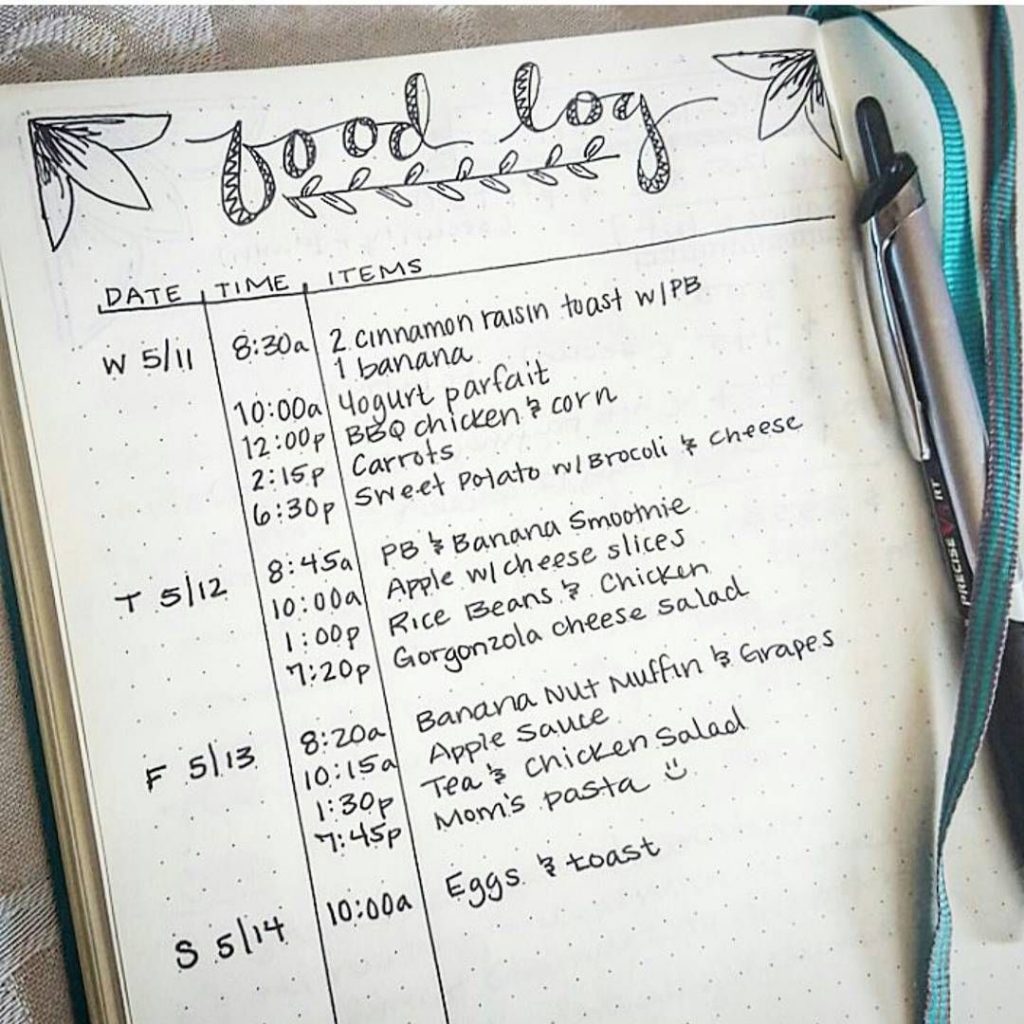 food log
DATE TIME ITEMS
W 5/11 8:30a 2 cinnamon raisin toast w/PB
1 banana
10:00a Yogurt parfait
12:00p BBQ chicken & corn
2:15p Carrots
6:30p Sweet Potato w/Brocoli & cheese
T 5/12 8:45a PB & Banana Smoothie
10:00a Apple w/cheese slices
1:00p Rice Beans & Chicken
7:20p Gorgonzola cheese salad
F 5/13 8:20a Banana Nut Muffin & Grapes
10:15a Apple Sauce
1:30p Tea & Chicken Salad
7:45p Mom's pasta ☺
S 5/14 10:00a Eggs & toast
PRECISE RT